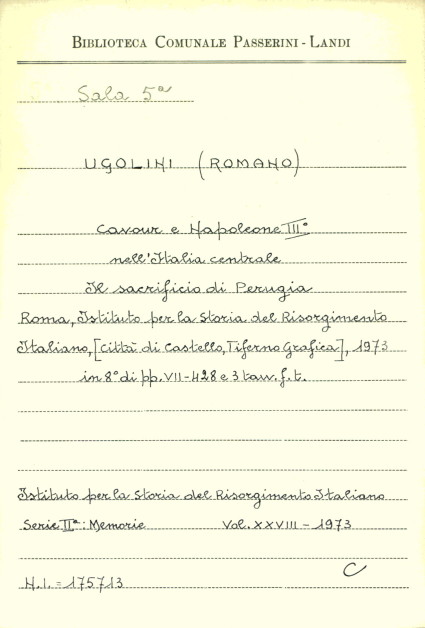 BIBLIOTECA COMUNALE PASSERINI - LANDI
Sala 5ª
UGOLINI (ROMANO)
Cavour e Napoleone IIIº
nell'Italia centrale
Il sacrificio di Perugia
Roma, Istituto per la Storia del Risorgimento
Italiano, [Città di Castello, Tiferno Grafica], 1973
in 8º di pp. VII-428 e 3 tavv. f. t.
Istituto per la Storia del Risorgimento Italiano
Serie IIª: Memorie Vol. XXVIII - 1973
C
N.I. = 175713